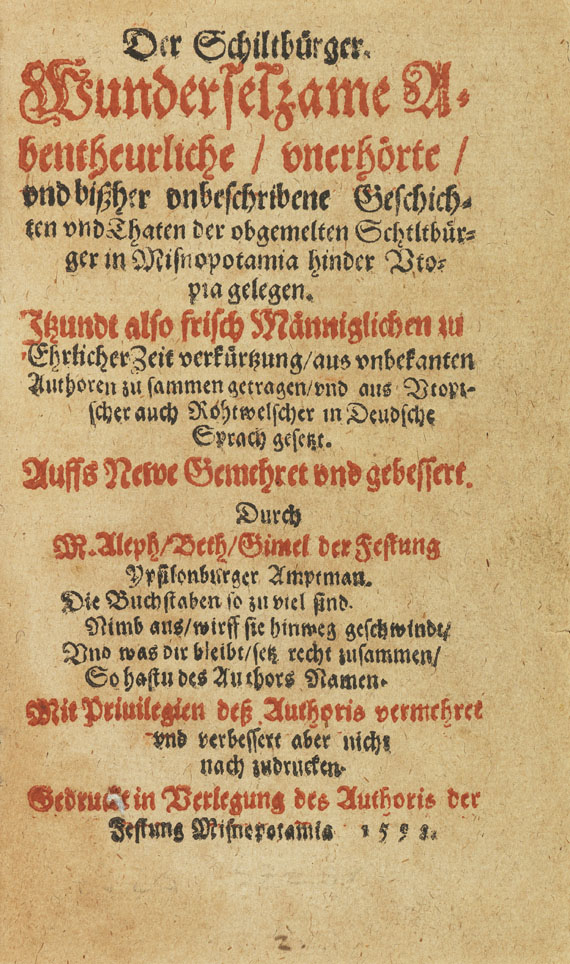 Der Schiltbürger.
Wunderselzame A-
bentheurliche / vnerhörte /
vnd bißher vnbeschribene Geschich-
ten vnd Thaten der obgemelten Schiltbür-
ger in Misnopotamia hinder Vto-
pia gelegen.
Jtzundt also frisch Männiglichen zu
Ehrlicher Zeit verkürtzung / aus vnbekanten
Authoren zu sammen getragen / vnd aus Vtopi-
scher auch Röhtwelscher in Deudsche
Sprach gesetzt.
Auffs Newe Gemehret vnd gebessert.
Durch
M. Aleph / Beth / Gimel der Festung
Ypsilonburger Amptman.
Die Buchstaben so zu viel sind.
Nimb aus / wirff sie hinweg geschwindt /
Vnd was dir bleibt / setz recht zusammen /
So hastu des Authors Namen.
Mit Priuilegien deß Authoris vermehret
vnd verbessert aber nicht
nach zudrucken.
Gedruckt in Verlegung des Authoris der
Festung Misnopotamia 1598.
2